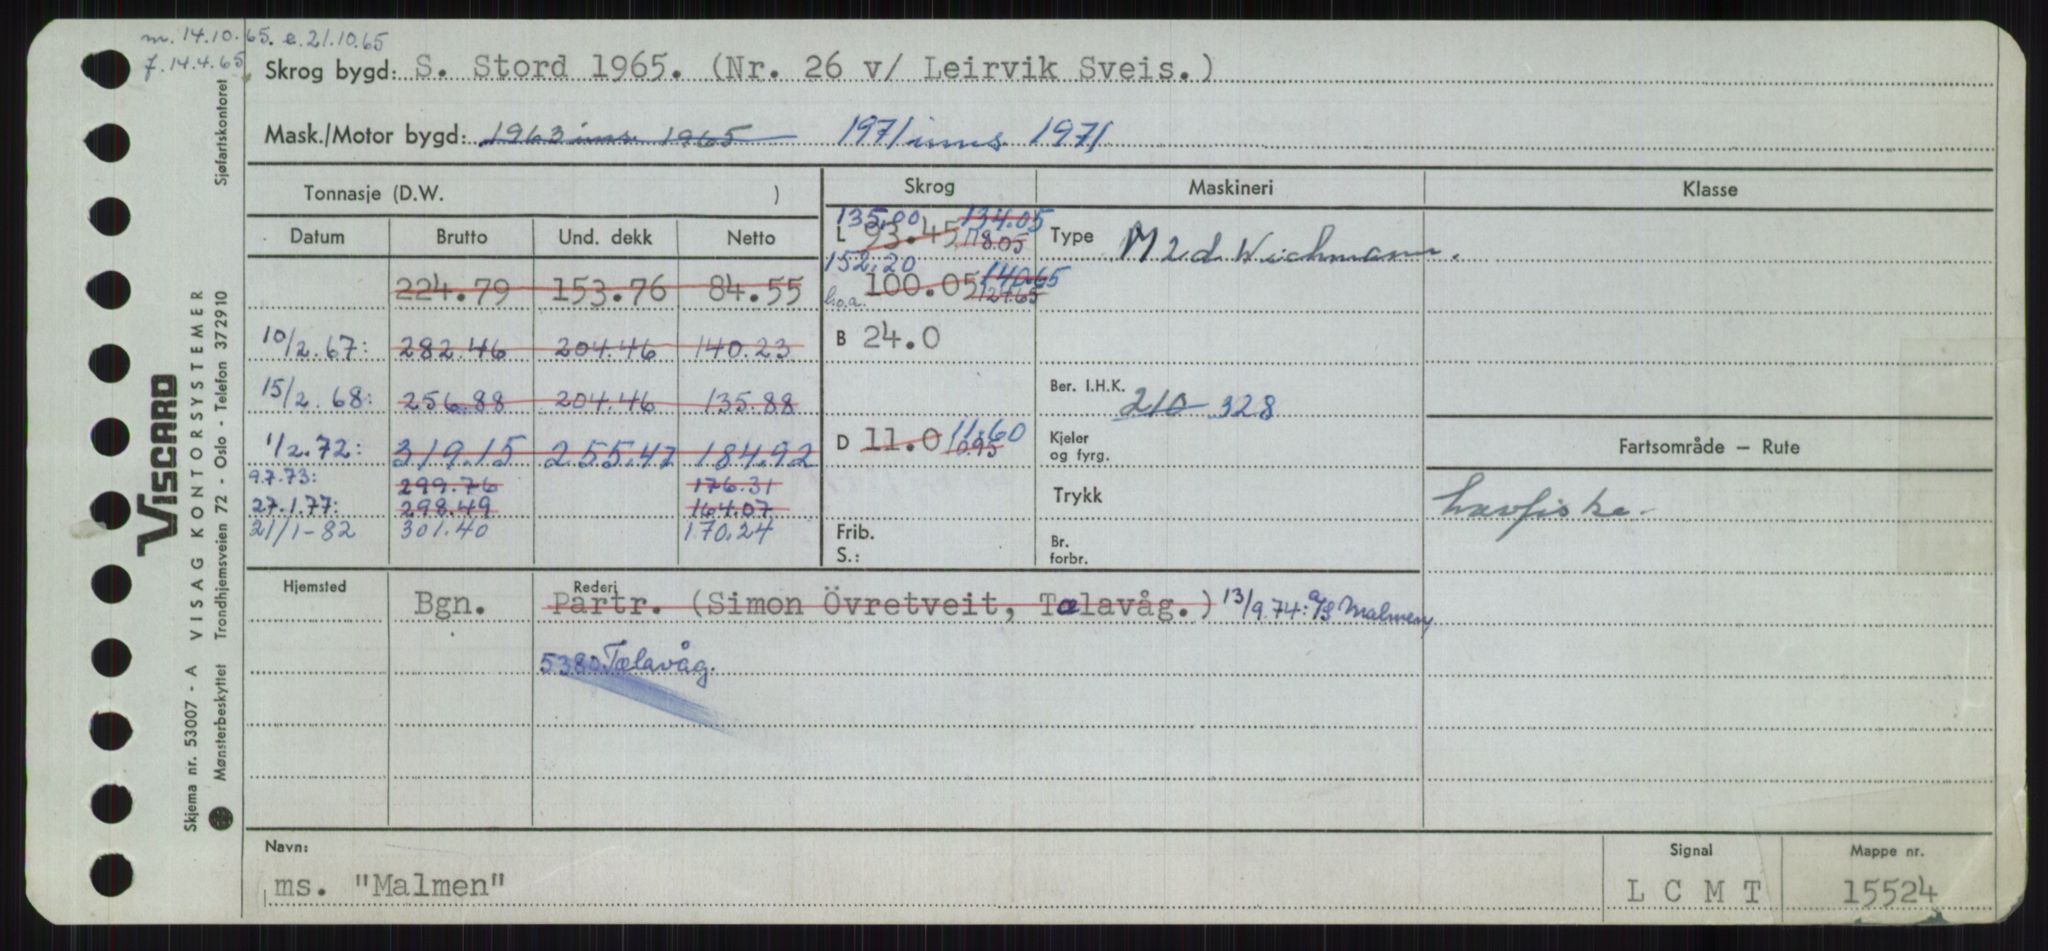 m. 14.10.65. e. 21.10.65
f. 14.4.65
Skrog bygd: S. Stord 1965. (Nr. 26 v/ Leirvik Sveis.)
Mask./Motor bygd: 1963 inns. 1965 1971 inns 1971
Tonnasje (D.W. ) Skrog Maskineri Klasse
Datum Brutto Und. dekk Netto
135,00 134.05
L 93.45 118.05
Type M 2 d Wichmann.
152.20 140.65
224.79 153.76 84.55 l.o.a. 100.05 127.65
10/2.67: 282.46 204.46 140.23 B 24.0
15/2.68: 256.88 204.46 135.88 Ber. I.H.K. 210 328
1/2.72: 319.15 255.47 184.92 D 11.0 11.60 10.95 Kjeler og fyrg. Fartsområde — Rute
9.7.73: 299.76 176.31 Trykk havfiske.
27.1.77: 298.49 164.07
21/1-82 301.40 170.24 Frib. S.: Br. forbr.
Hjemsted Rederi
Bgn. Partr. (Simon Övretveit, Tælavåg.) 13/9.74: a/s Malmen,
5380 Tælavåg.
Navn: Signal Mappe nr.
ms. "Malmen" L C M T 15524
Skjema nr. 53007 - A VISAG KONTORSYSTEMER Sjøfartskontoret
Mønsterbeskyttet Trondhjemsveien 72 - Oslo - Telefon 372910
VISCARD